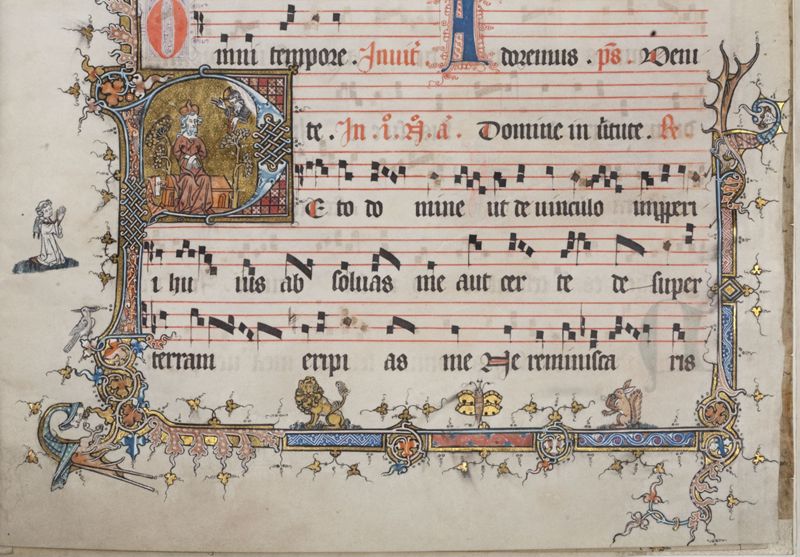 Omni tempore . Inuit̃ . Adoremus . p̃s . Veni
te . In . i° . N̄ . ã . Domine in ũtute . Re
PE to do mine ut de uinculo inp̱peri
i hu ius ab soluas me aut cer te de super
terram eripi as me Ne reminisca ris